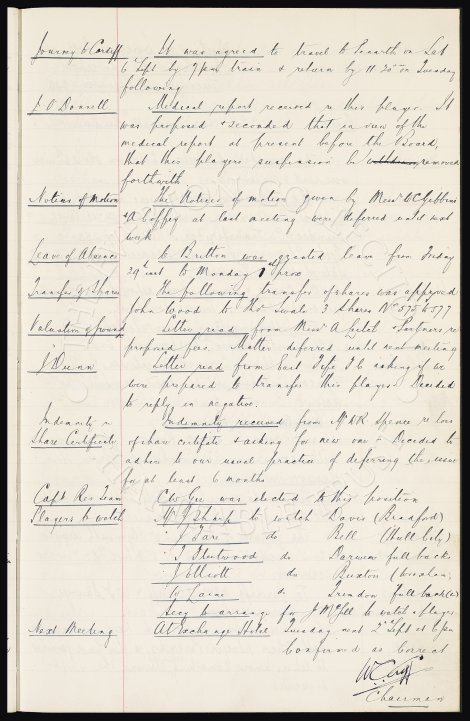 Journey to Cardiff It was agreed to travel to Penarth on Sat
6th Sept by 7pm train & return by 11.20 on Tuesday
following
J O Donnell Medical report received re this player. It
was proposed & seconded that in view of the
medical report at present before the Board,
that this players suspension be withdrawn removed
forthwith
Notices of Motion The Notices of motion given by Messrs W C Gibbins
& A Coffey at last meeting were deferred until next
week
Leave of Absence C Britton was granted leave from Friday
29th inst to Monday 1st prox
Transfer of Shares The following transfer of shares was approved
John Wood to Thos 3 Shares No 575 to 577
Valuation of ground Letter read from Messrs & Partners re
proposed fees. Matter deferred until next meeting
J Dunn Letter read from East Fife F C asking if we
were prepared to transfer this player. Decided
to reply in negative.
Indemnity re Indemnity received from Mr Spence re loss
Share Certificate of share certifcate & asking for new one - Decided to
adhere to our usual practice of deferring the issue
for at least 6 months
Capt Res Team C W Gee was elected to this position
Players to watch Mr J Sharp to watch Davis (Bradford)
" J Fare do Bell (Hull City)
" T Fleetwood do Darwen full backs
J Elliott do Buxton
W Laine do Trandon full back(s)
Secy to arrange for J McGill to watch players
Next Meeting At Exchange Hotel Tuesday next 2nd Sept at 6pm
Confirmed as Correct
W C Cuff
Chairman